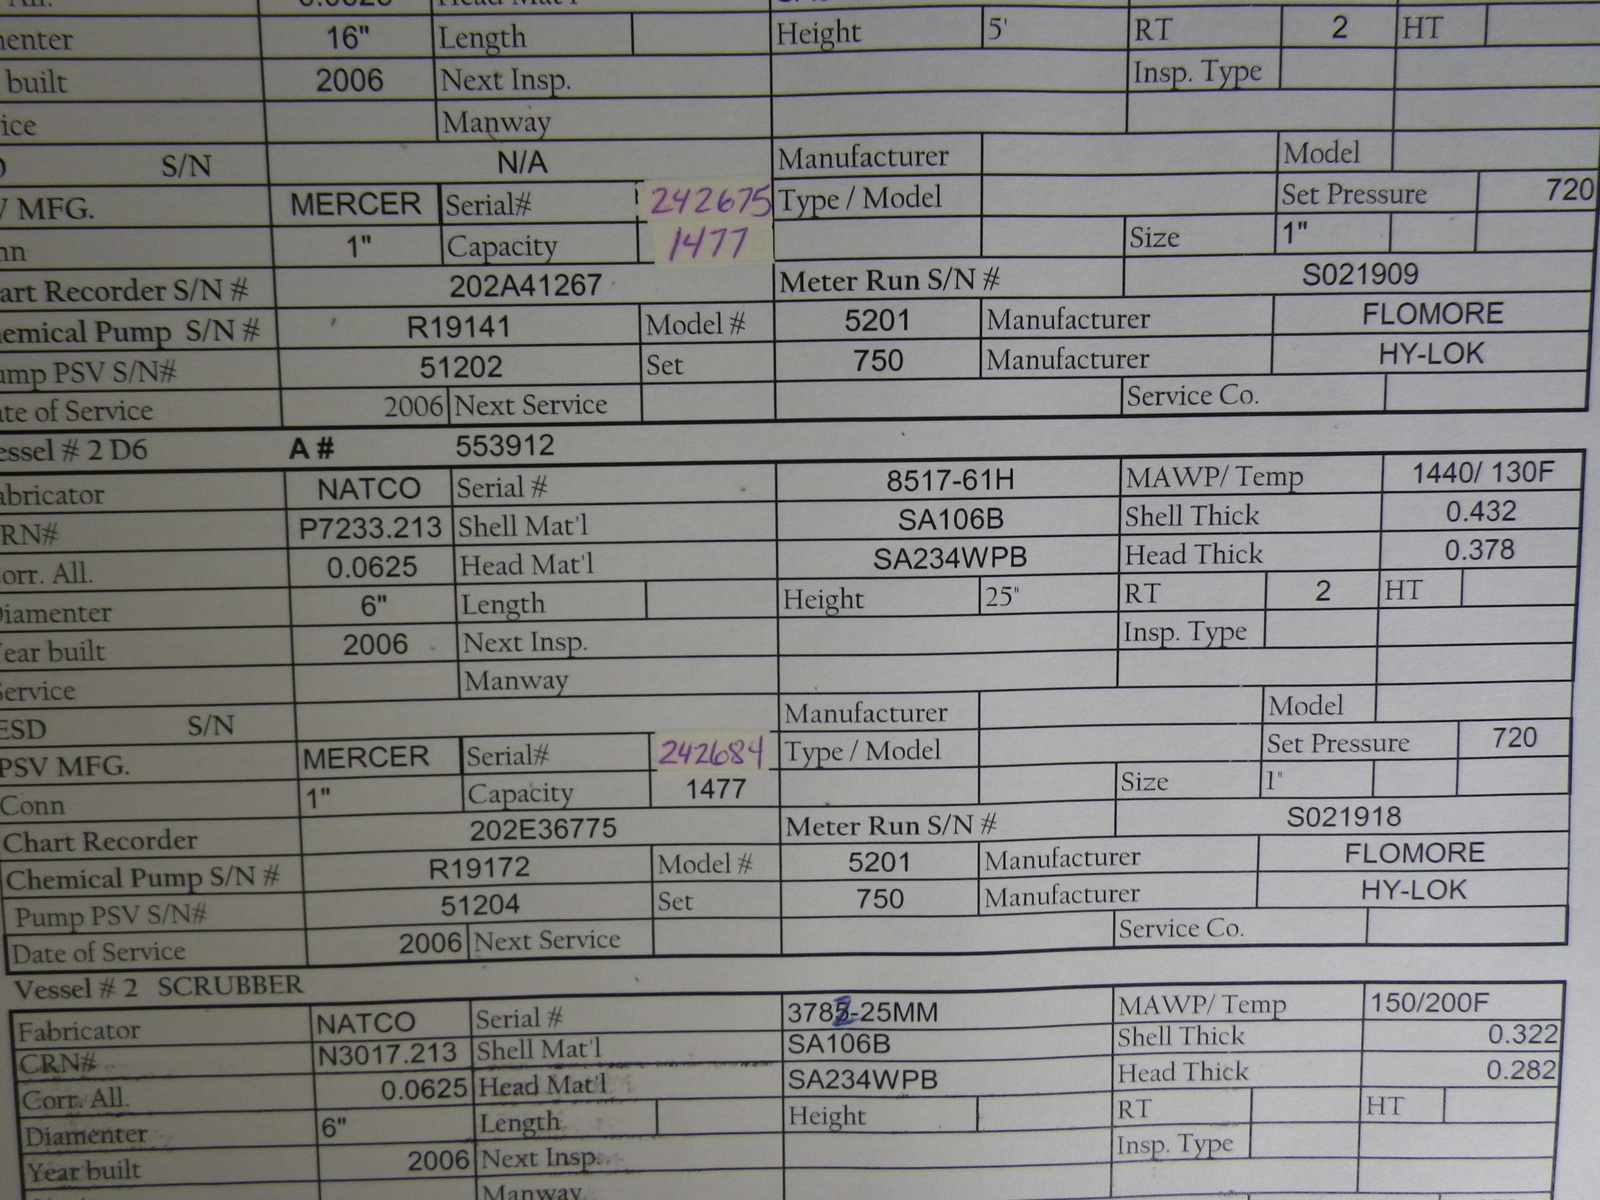 Height 5' RT 2 HT
16" Length
built 2006 Next Insp. Insp. Type
Manway
S/N N/A Manufacturer Model
MFG. MERCER Serial# 242675 Type / Model Set Pressure 720
1" Capacity 1477 Size 1"
Recorder S/N # 202A41267 Meter Run S/N # S021909
Pump S/N # R19141 Model # 5201 Manufacturer FLOMORE
PSV S/N# 51202 Set 750 Manufacturer HY-LOK
of Service 2006 Next Service Service Co.
# 2 D6 A # 553912
NATCO Serial # 8517-61H MAWP/ Temp 1440/ 130F
P7233.213 Shell Mat'l SA106B Shell Thick 0.432
All. 0.0625 Head Mat'l SA234WPB Head Thick 0.378
Diamenter 6" Length Height 25" RT 2 HT
Year built 2006 Next Insp. Insp. Type
Service Manway
ESD S/N Manufacturer Model
PSV MFG. MERCER Serial# 242684 Type / Model Set Pressure 720
Conn 1" Capacity 1477 Size 1"
Chart Recorder 202E36775 Meter Run S/N # S021918
Chemical Pump S/N # R19172 Model # 5201 Manufacturer FLOMORE
Pump PSV S/N# 51204 Set 750 Manufacturer HY-LOK
Date of Service 2006 Next Service Service Co.
Vessel # 2 SCRUBBER
Fabricator NATCO Serial # MAWP/ Temp 150/200F
CRN# N3017.213 Shell Mat'l SA106B Shell Thick 0.322
Corr. All. 0.0625 Head Mat'l SA234WPB Head Thick 0.282
Diamenter 6" Length Height RT HT
Year built 2006 Next Insp. Insp. Type
Manway